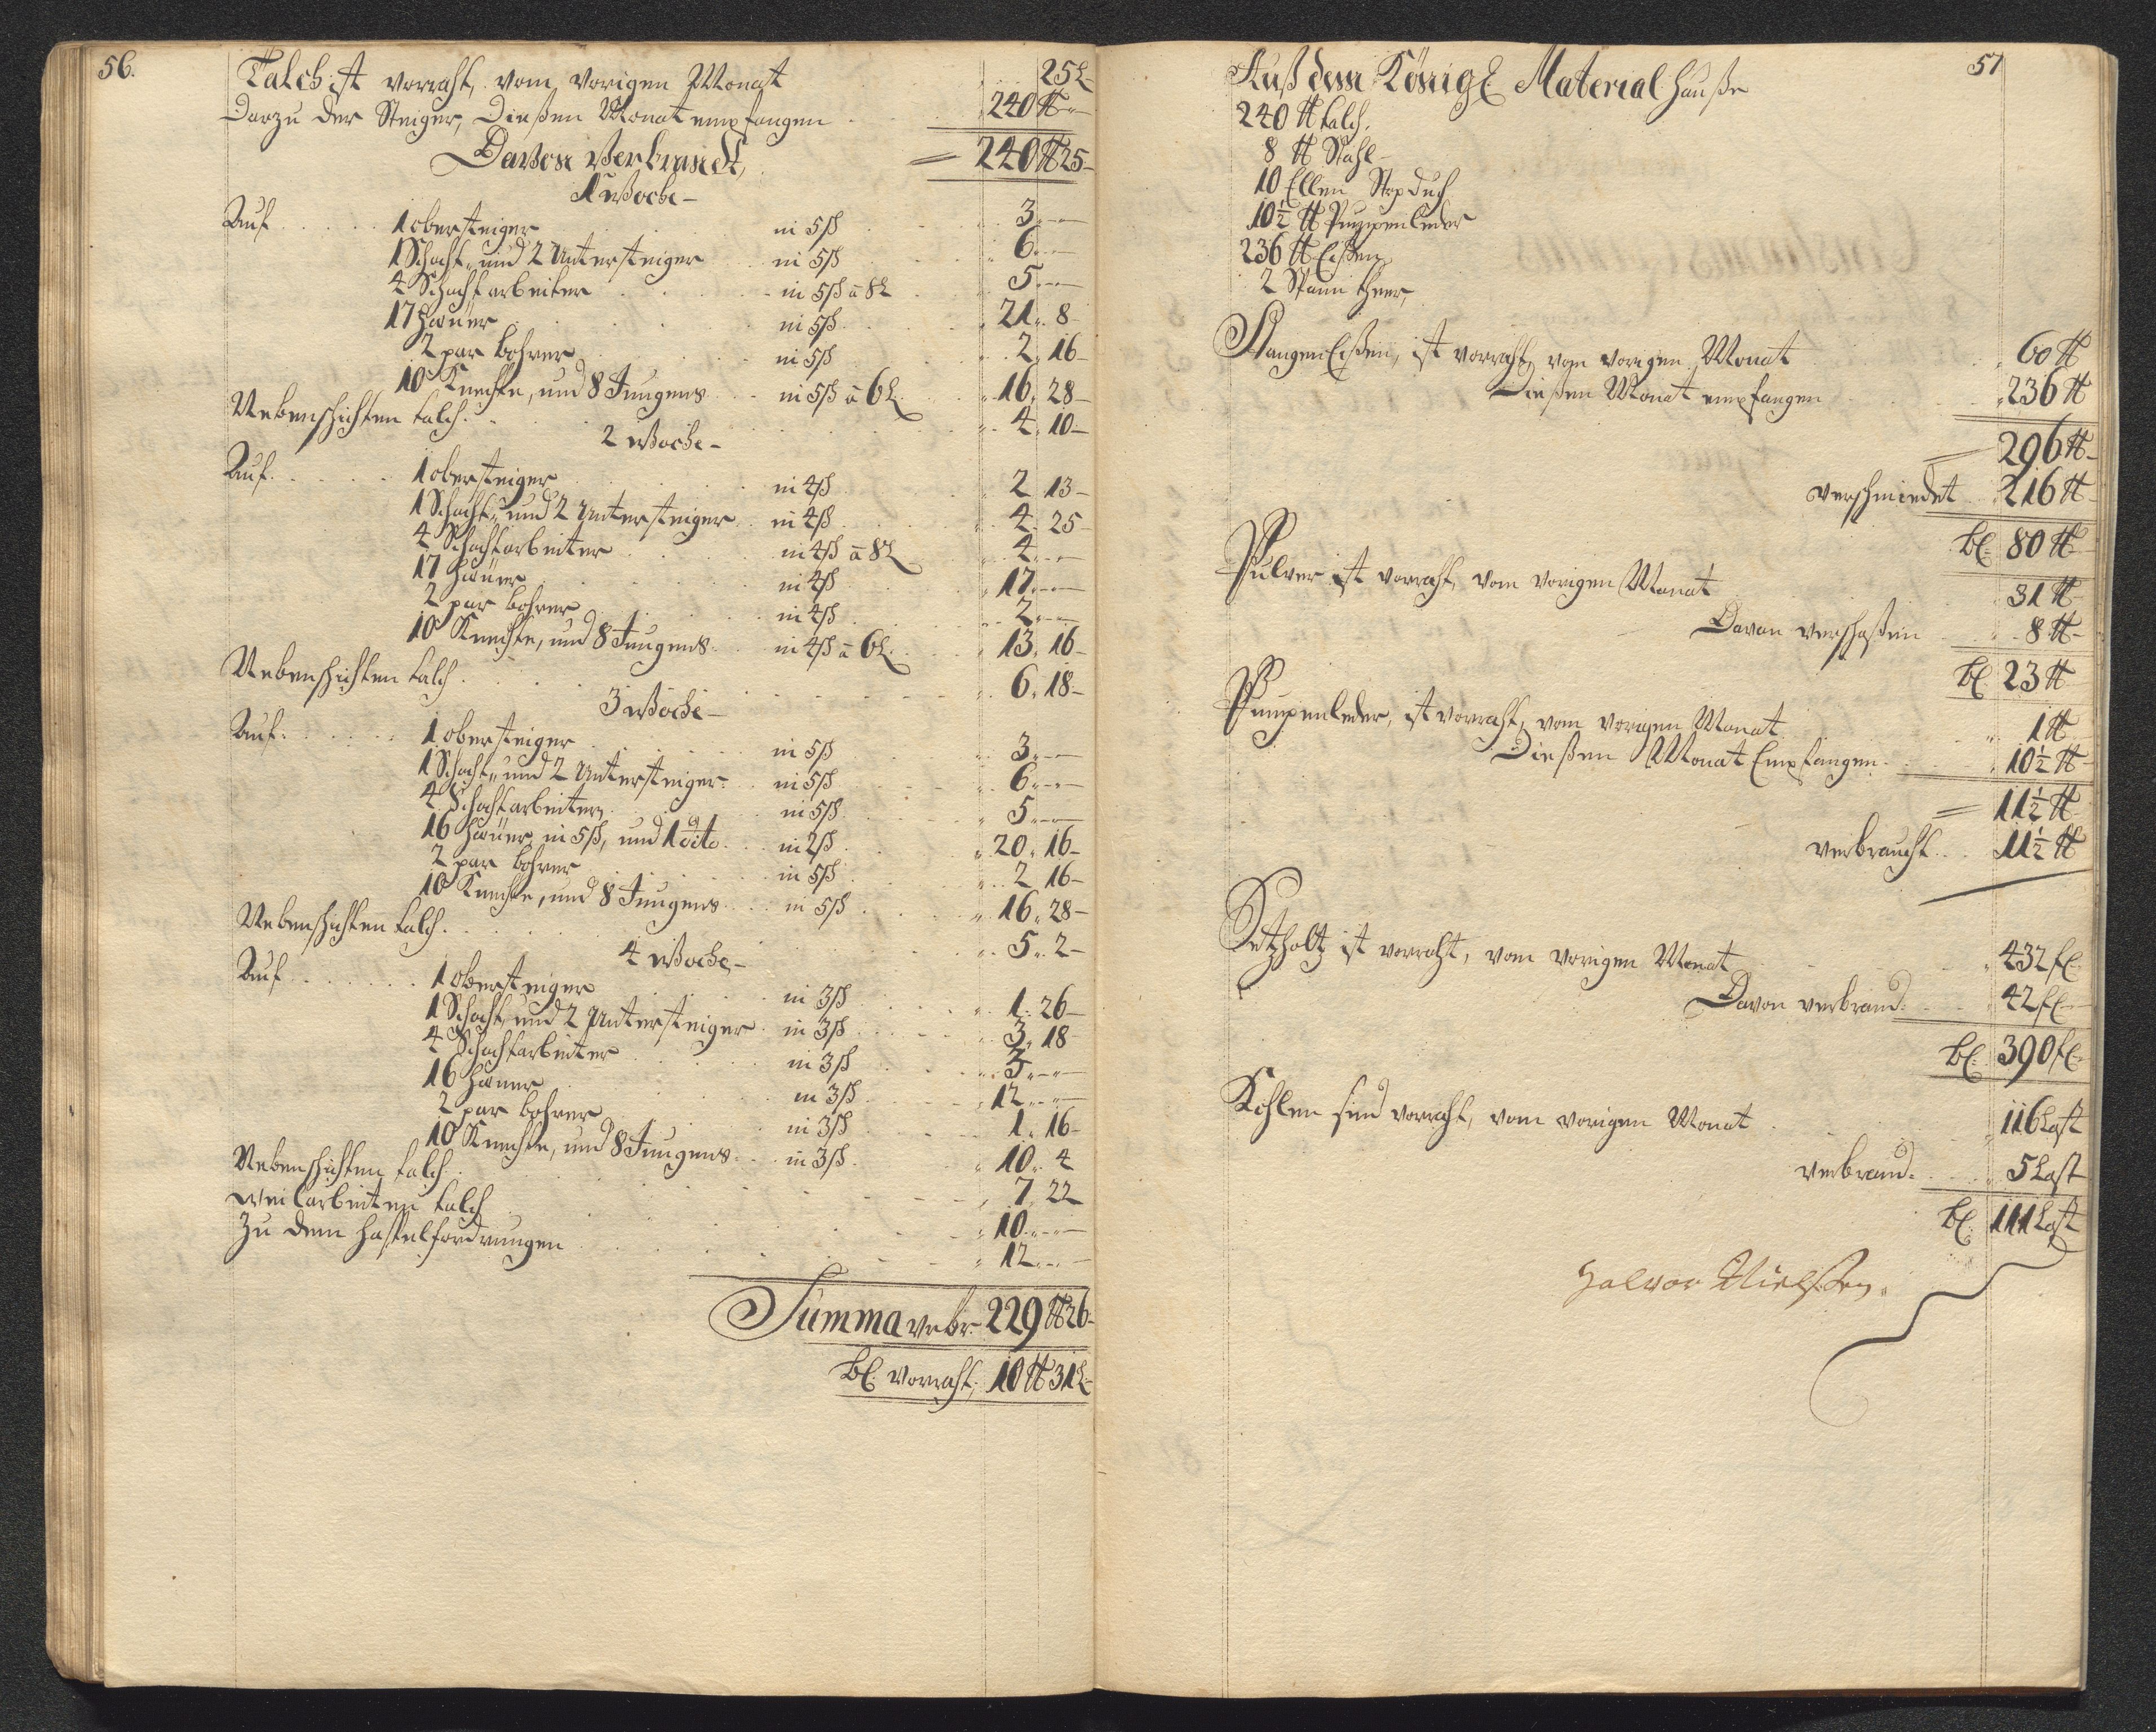 56.
Talch ist vorraht, vom vorigen Monat 25 L
Darzu der Steiger, Dießen Monat empfangen 240 ℔
Davon Verbrandt, = 240 ℔ 25
1 Woche
Auf 1 obersteiger in 5 ß 3
1 Schacht, und 2 Untersteiger in 5 ß 6
4 Schachtarbeiter in 5 ß a 8 L 5
17 Hauer in 5 ß 21 8
2 par bohrer in 5 ß 2 16
10 Knechte, und 8 Jungens in 5 ß a 6 L 16 28
Nebenschichten talch 4 10
2 Woche
Auf 1 obersteiger in 4 ß 2 13
1 Schacht, und 2 Untersteiger in 4 ß 4 25
4 Schachtarbeiter in 4 ß a 8 L 4
17 Hauer in 4 ß 17
2 par bohrer in 4 ß 2
10 Knechte, und 8 Jungens in 4 ß a 6 L 13 16
Nebenschichten talch 6 18
3 Woche
Auf 1 obersteiger in 5 ß 3
1 Schacht, und 2 Untersteiger in 5 ß 6
4 Schachtarbeiter in 5 ß 5
16 Hauer in 5 ß, und 1 dito in 2 ß 20 16
2 par bohrer in 5 ß 2 16
10 Knechte, und 8 Jungens in 5 ß 16 28
Nebenschichten talch 5 2
4 Woche
Auf 1 obersteiger in 3 ß 1 26
1 Schacht, und 2 Untersteiger in 3 ß 3 18
4 Schachtarbeiter in 3 ß 3
16 Hauer in 3 ß 12
2 par bohrer in 3 ß 1 16
10 Knechte, und 8 Jungens in 3 ß 10 4
Nebenschichten talch 7 22
weilarbeiten talch 10
Zu dem haspelfordrungen 12
Summa verbr. 229 ℔ 26
bl. vorraht, 10 ℔ 31 L
57
Auß dem Königl Material Hauße
240 ℔ talch,
8 ℔ Stahl
10 Ellen Duch
10 1/2 ℔ Pumpenleder
236 ℔ Eißen,
2 theer,
Stangen Eißen, ist vorraht, vom vorigen Monat 60 ℔
Dießen Monat empfangen 236 ℔
296 ℔
verschmiedet 216 ℔
bl. 80 ℔
Pulver ist vorraht, vom vorigen Monat 31 ℔
Davon verschoßen 8 ℔
bl. 23 ℔
Pumpenleder, ist vorraht, vom vorigen Monat 1 ℔
Dießen Monat Empfangen 10 1/2 ℔
= 11 1/2 ℔
verbraucht 11 1/2 ℔
Setzholtz ist vorraht, vom vorigen Monat 432 fl.
Davon verbrand 42 fl.
bl. 390 fl.
Kohlen sind vorraht, vom vorigen Monat 116 Last
verbrand 5 Last
bl. 111 Last
Halvor Nielßen.